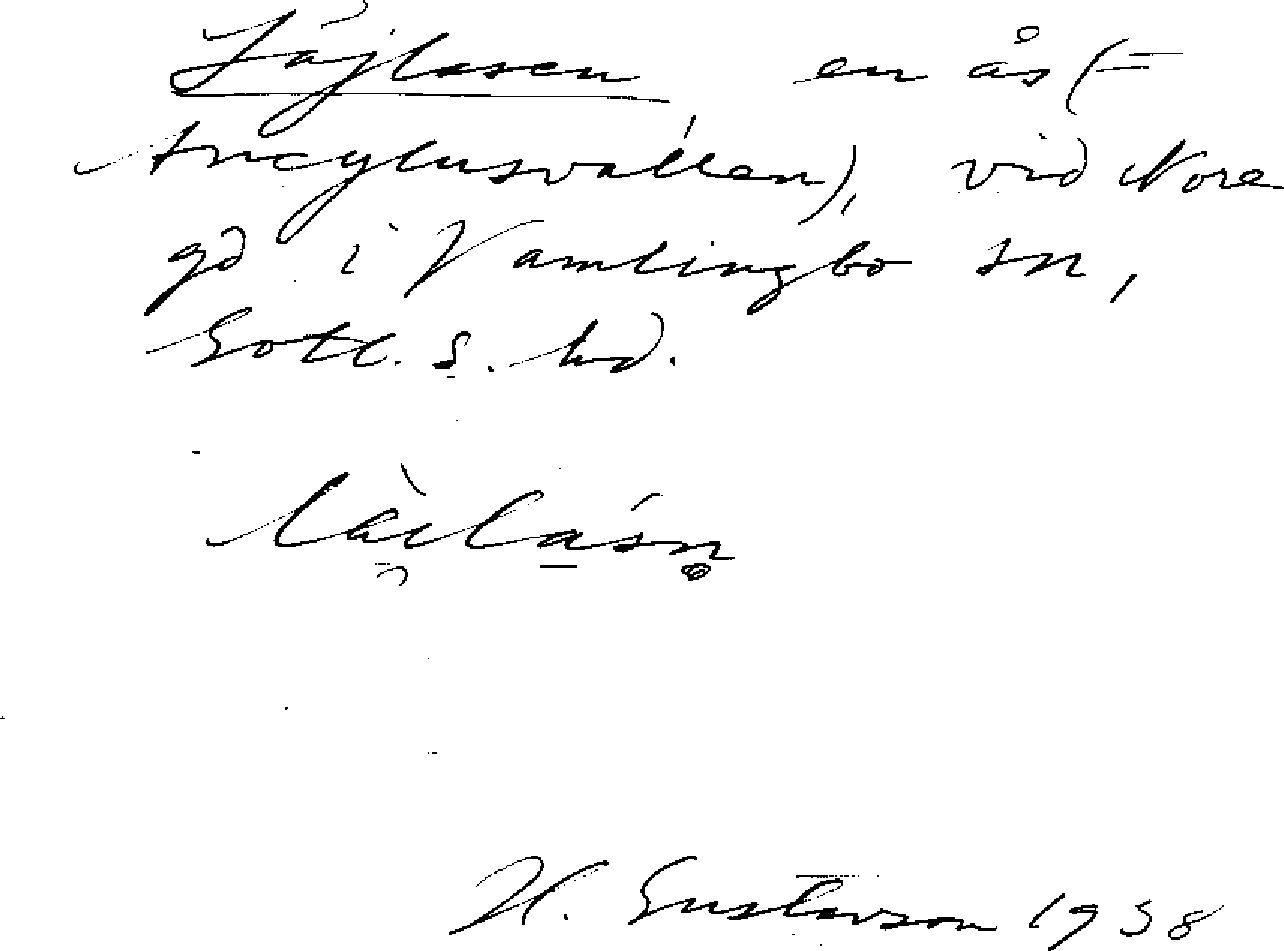 Läjlasen en ås (=
Ancylusvallen), vid Nore
gd i Vamlingbo sn,
Gotl. S. hd.
H. Gustavson 1938